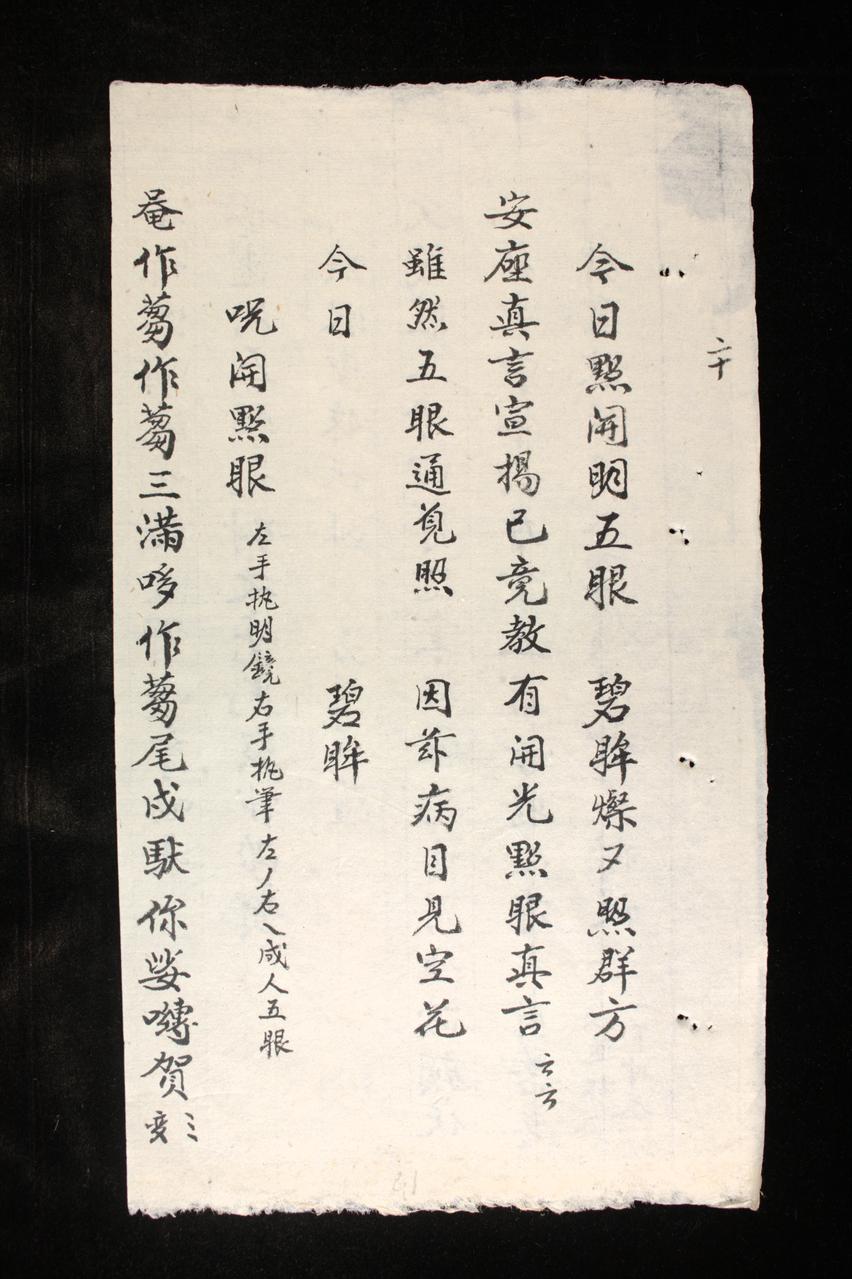 六十
今日點開明五眼 碧眸燦又照群方
安座真言宣揚已竟教有開光點眼真言 云云
雖然五眼通見照 因兹病目見空花
今日 碧眸
呪開點眼 左手执明鏡右手执筆左丿右乀成人五眼
唵作蒭作蒭三滿哆作蒭尾戍馱你娑嚩賀 三変